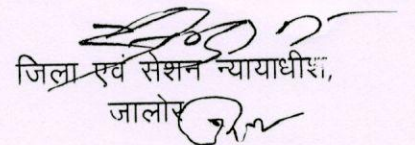 जिला एवं सेशन न्यायाधीश,
जालोर